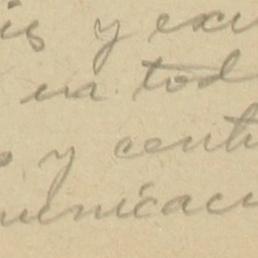 is y exc
en tod
o y cent
municaci